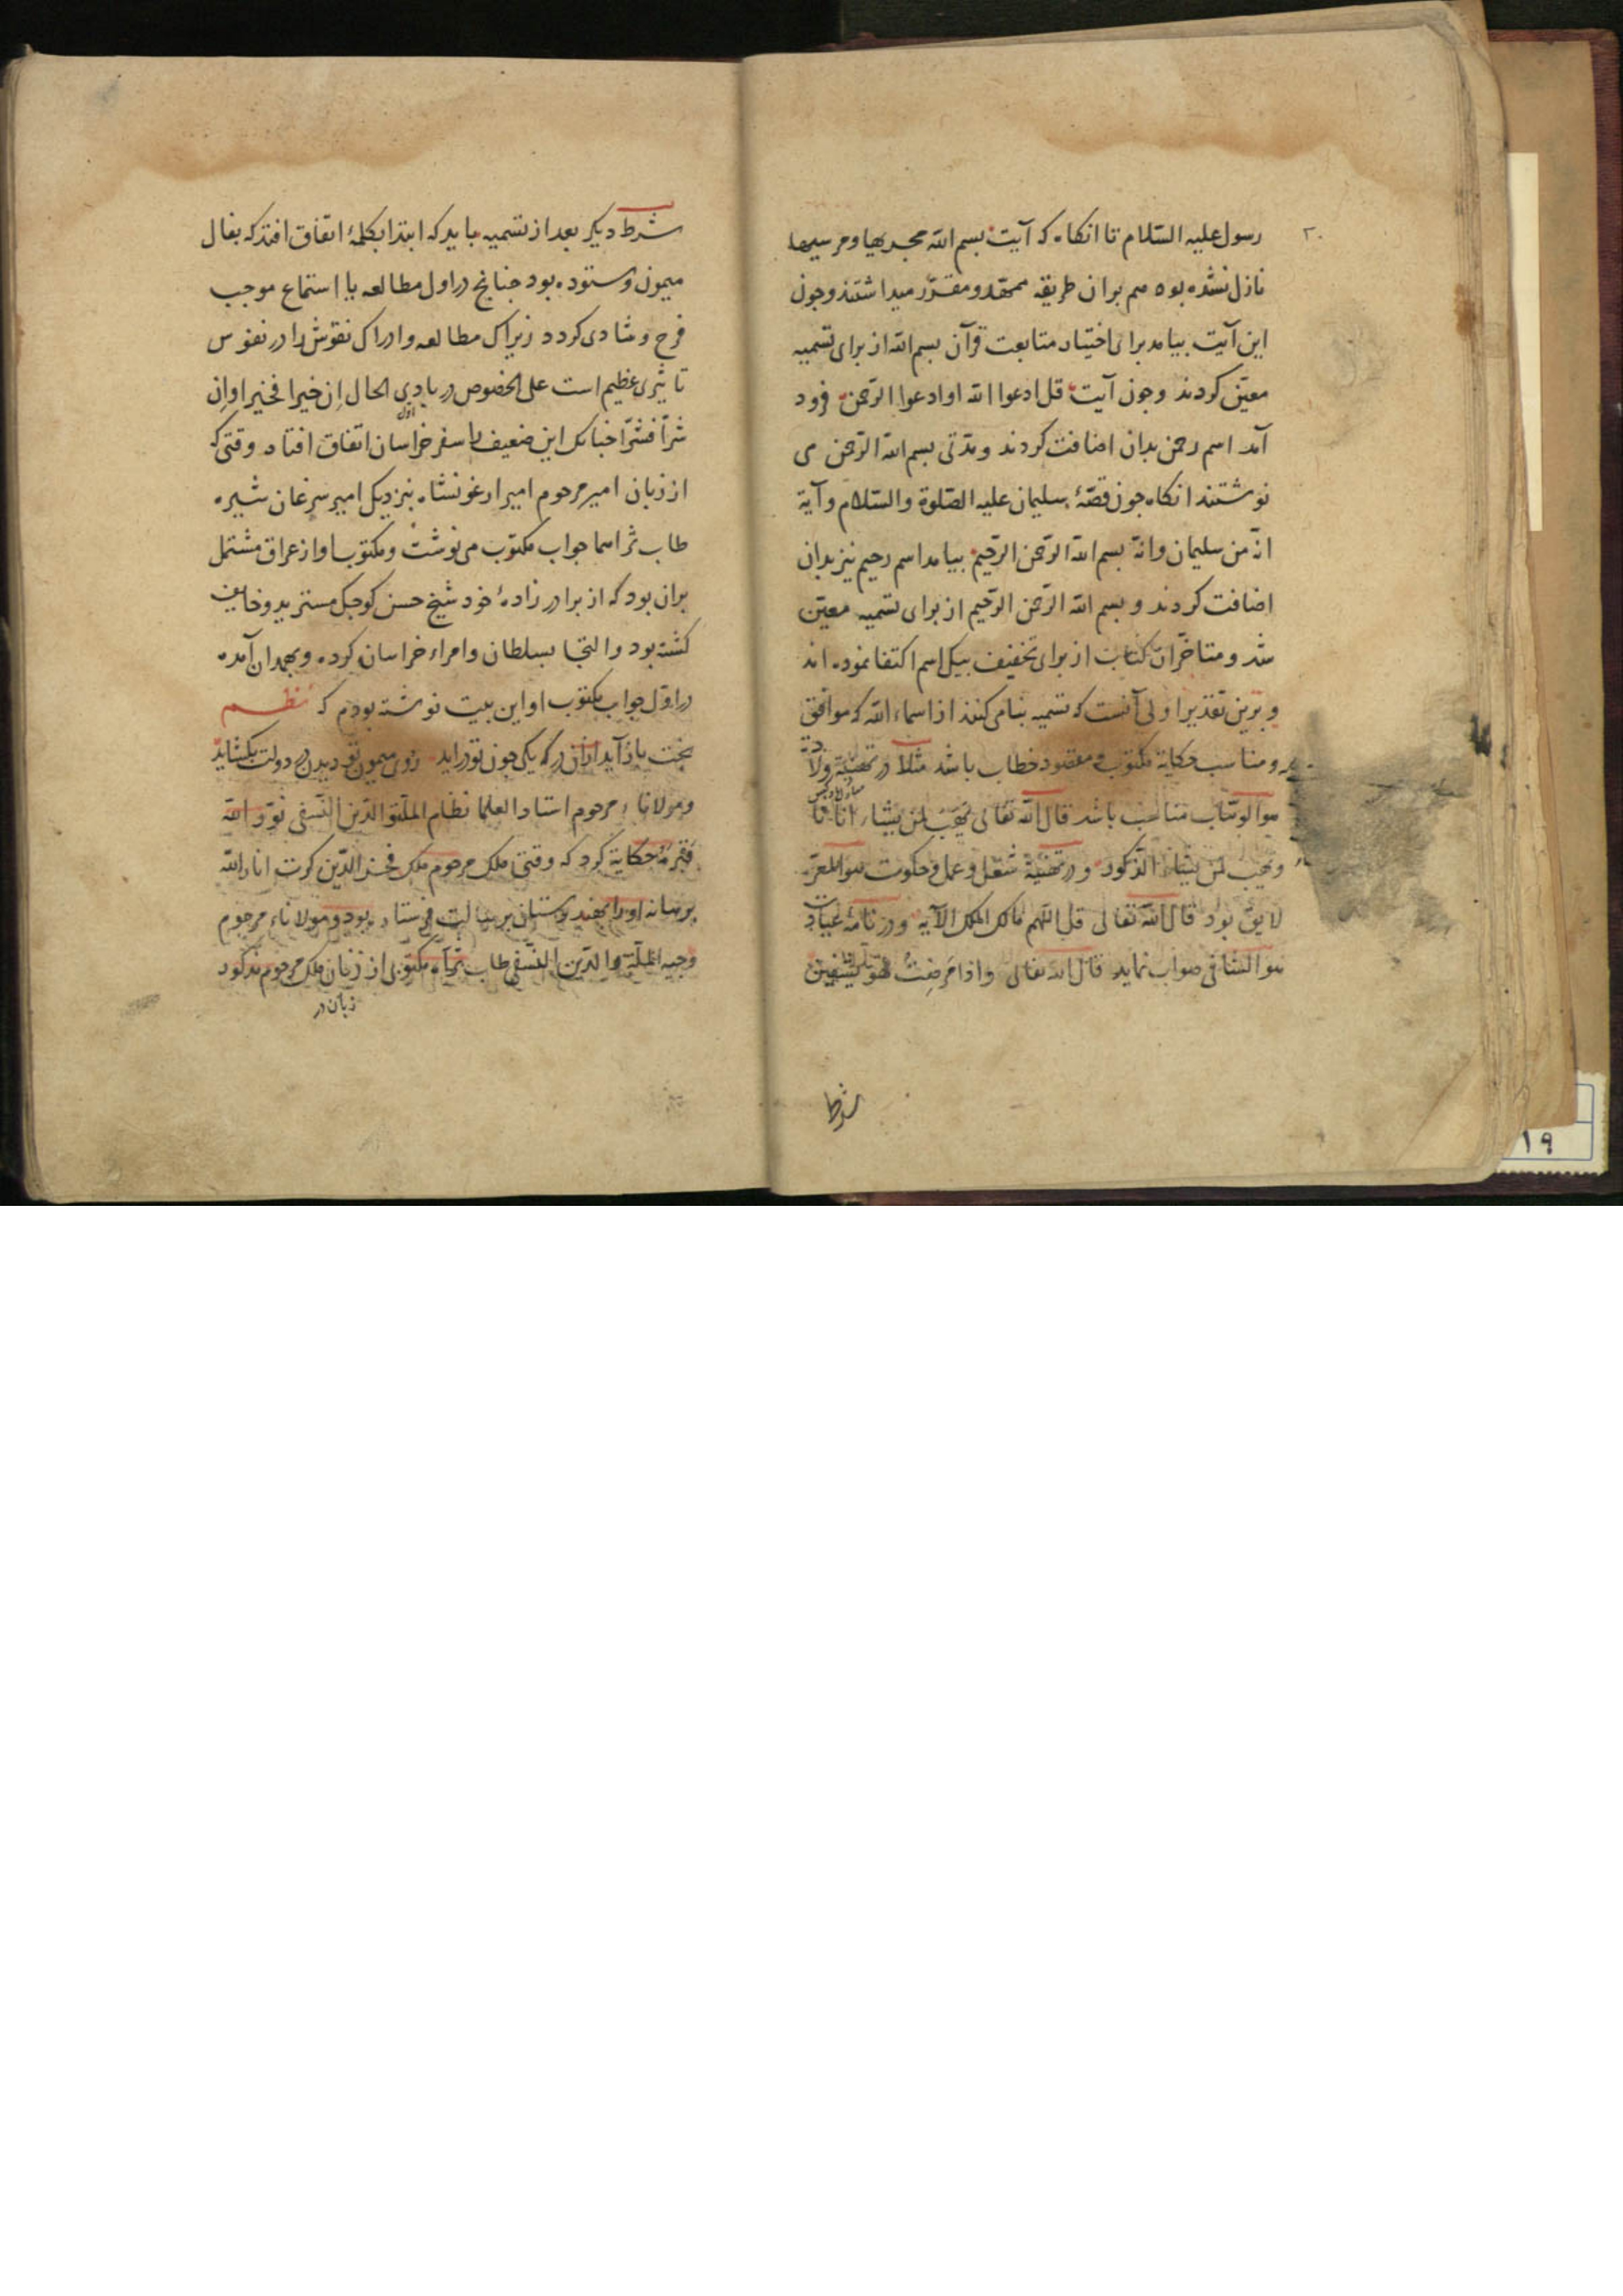 ۲۰
رسول علیه السّلام تا انکاه که آیت بسم الله مجریها و مرسیها
نازل نشده بود هم بران طریقه ممهّد و مقرّر میداشتند و جون
این آیت بیامد برای اختیار متابعت قرآن بسم الله از برای تسمیه
معیّن کردند و جون آیت قل ادعوا الله او ادعوا الرّحمن فرود
آمد اسم رحمن بدان اضافت کردند و مدّتی بسم الله الرّحمن می
نوشتند انکاه جون قصّهٔ سلیمان علیه الصّلوة والسّلام و آیة
انّه من سلیمان وانّه بسم الله الرّحمن الرّحیم بیامد اسم رحیم نیز بدان
اضافت کردند و بسم الله الرّحمن الرّحیم از برای تسمیه معیّن
شد و متاخّران کتابت از برای تخفیف بیک اسم اکتفا نموده اند
و برین تقدیر اولی آنست که تسمیه بنامی کنند از اسماء الله که موافق
و مناسب حکایة مکتوب و مقصود خطاب باشد مثلا در تهنیة ولادة
هو الوهّاب مناسب باشد قال الله تعالی یهب لمن یشاء اناثا
و یهب لمن یشاء الذّکور و در تهنیة شغل و عمل و حکومت هو المعزّ
لایق بود قال الله تعالی قل اللهم مالک الملک الآیه و در نامهٔ عیادت
هو الشافی صواب نماید قال الله تعالی واذا مرضتُ فهو یشفین
شرط
شرط دیکر بعد از تسمیه باید که ابتدا بکلمهٔ اتفاق افتد که بفال
میمون و ستوده بود جنانج در اول مطالعه یا استماع موجب
فرح و شادی کردد زیراک مطالعه و ادراک نقوش را در نفوس
تاثیری عظیم است علی الخصوص در بادی الحال اِن خیرا فخیر او اِن
شرّاً فشرّا جنانک این ضعیف را سفر خراسان اتفاق افتاد وقتی که
اوّل
از زبان امیر مرحوم امیر ارغونشاه بنزدیک امیر سرغان شیره
طاب ثراهما جواب مکتوب می نوشت و مکتوب او از عراق مشتمل
بران بود که از برادرزادهٔ خود شیخ حسن کوجک مستزید و خایف
کشته بود و التجا بسلطان و امراء خراسان کرده و بهمدان آمده
در اوّل جواب مکتوب او این بیت نوشته بودم که نظم
بخت باز آید ازان در که یکی جون تو در اید روی میمون تو دیدن در دولت بکشاید
و مولاناء مرحوم استاد العلما نظام الملّة والدّین النّسفی نوّر الله
قبره حکایة کرد که وقتی ملک مرحوم ملک فخر الدّین کرت انار الله
برهانه او را بهندوستان برسالت فرستاده بود و مولاناء مرحوم
وجیه الملّة والدّین النّسفی طاب ثراه مکتوبی از زبان ملک مرحوم مذکور
زبان در
۱۹